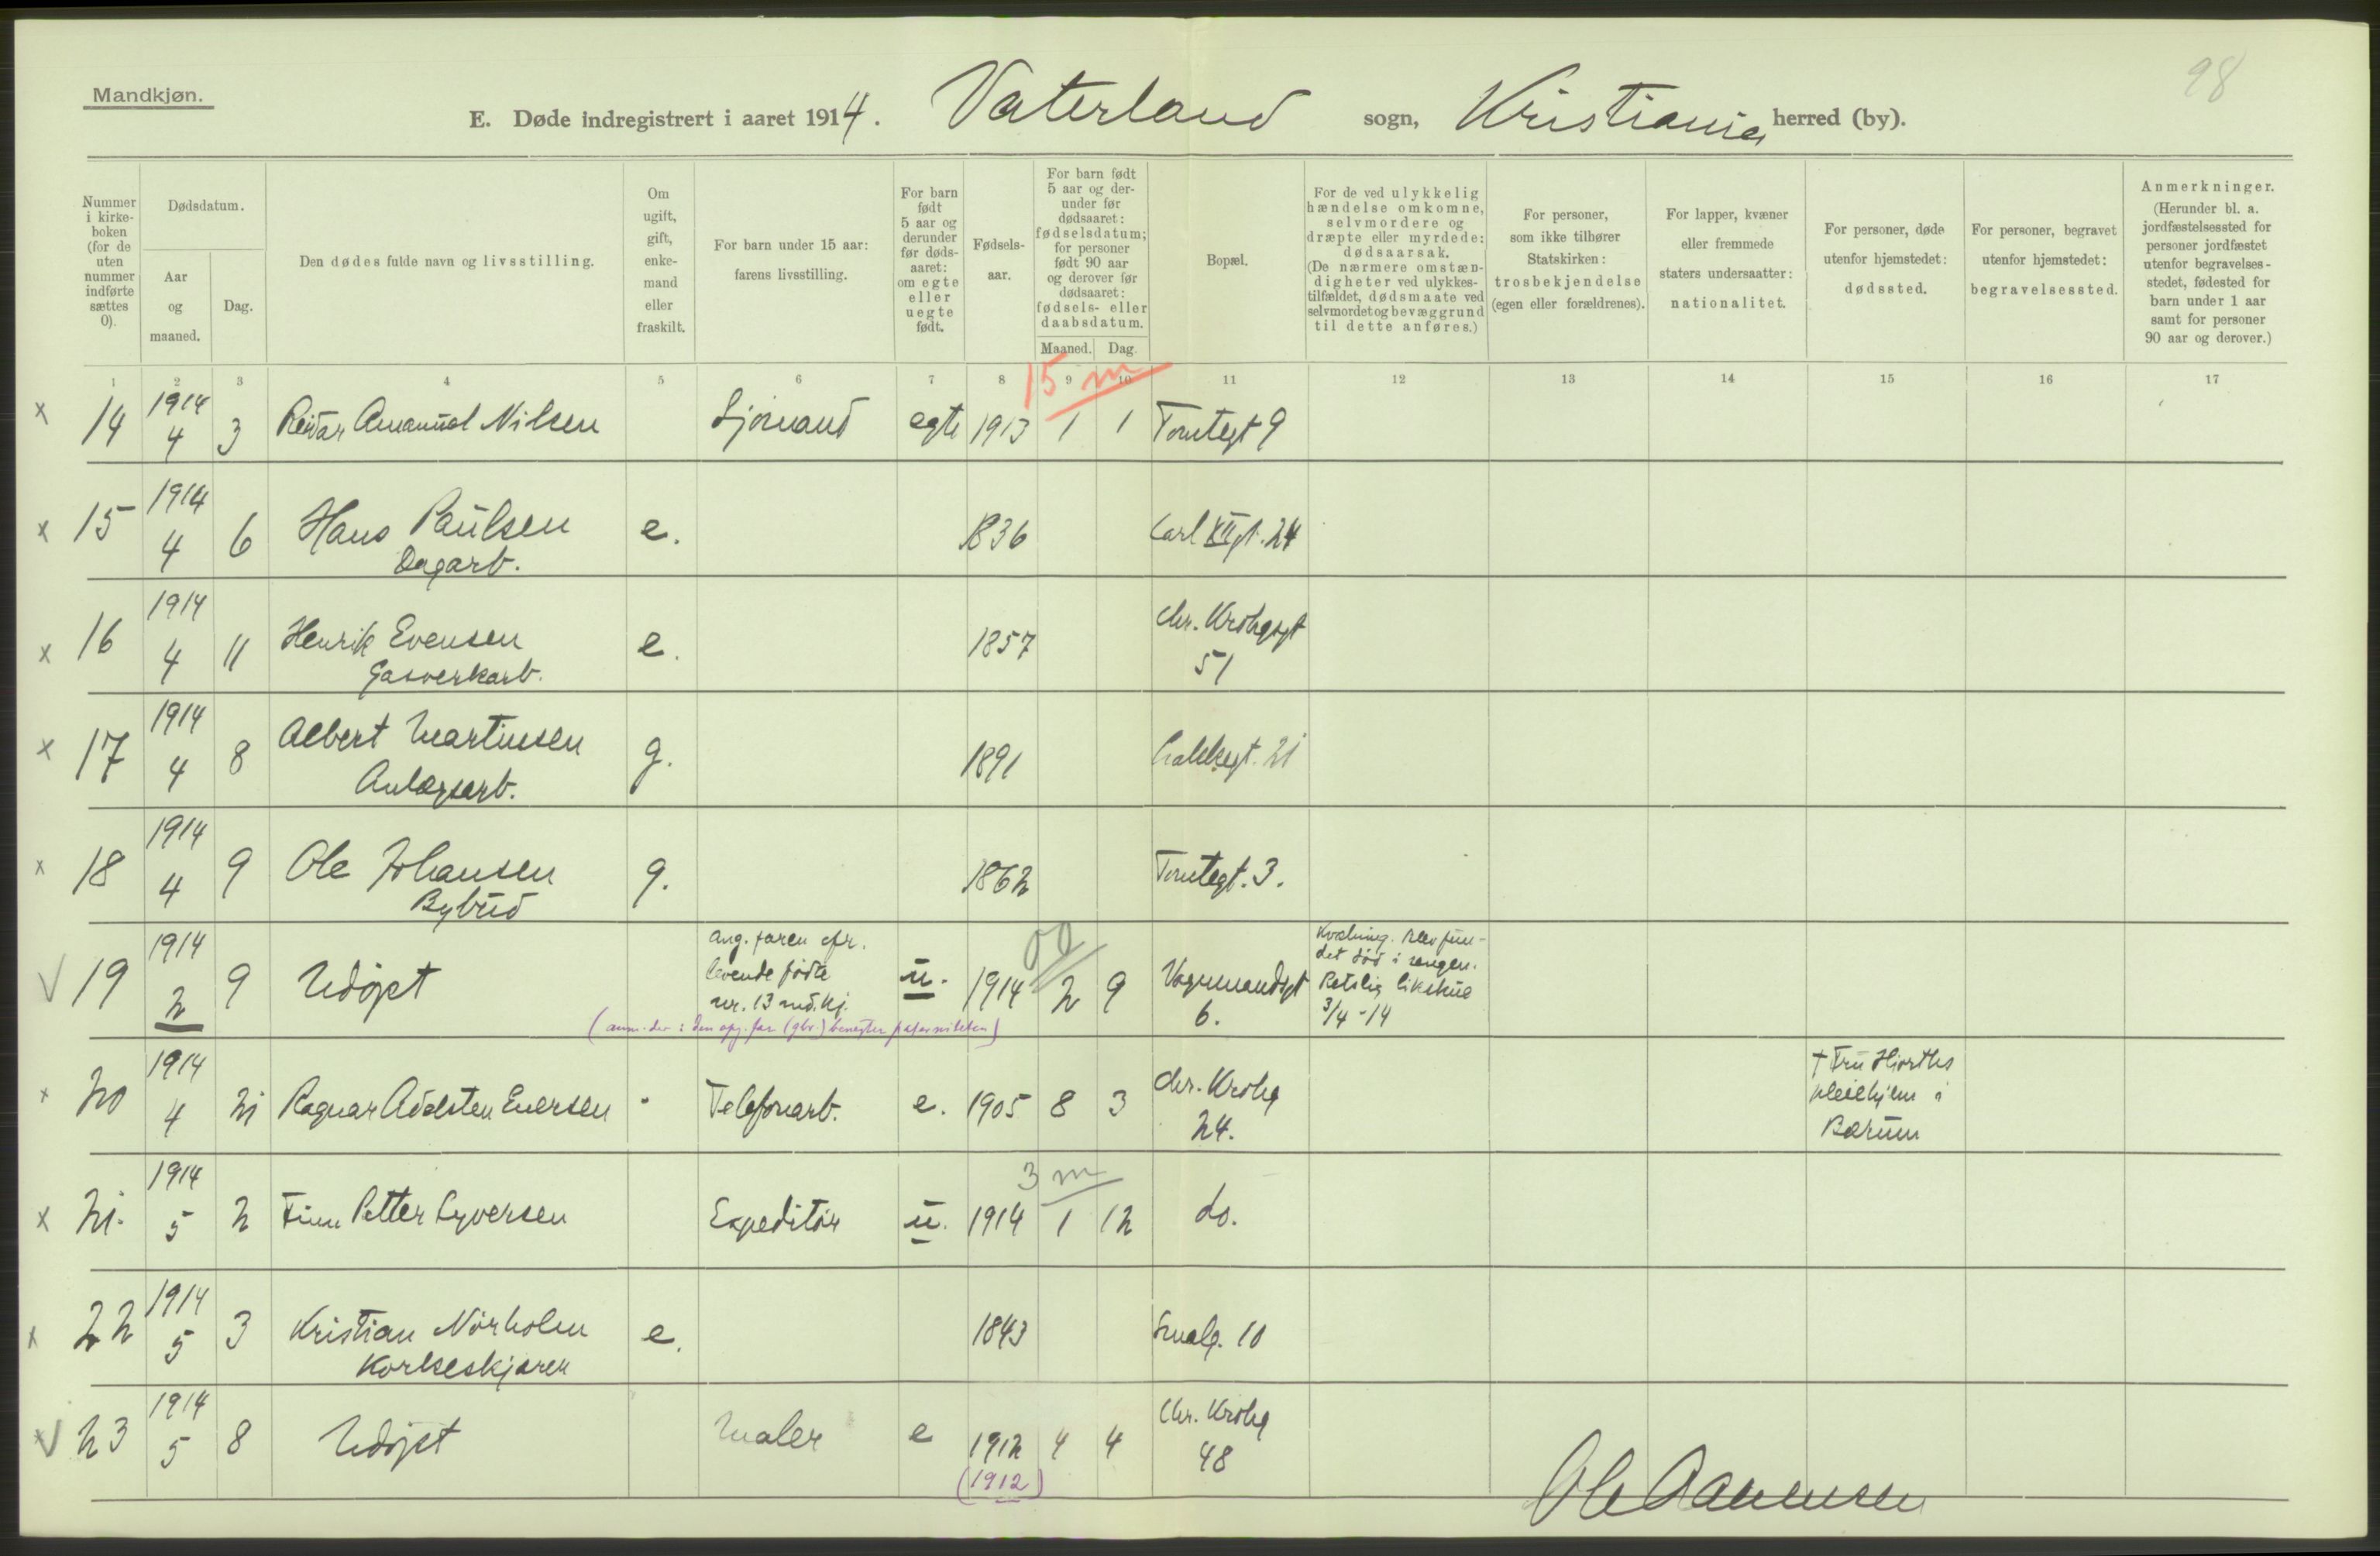 98
Mandkjøn.
E. Døde indregistrert i aaret 1914. Vaterland sogn, Kristiania herred (by).
Nummer i kirke- boken (for de uten nummer indførte sættes 0).
Dødsdatum.
Aar og maaned.
Dag.
Den dødes fulde navn og livsstilling.
Om ugift, gift, enke- mand eller fraskilt.
For barn under 15 aar: farens livsstilling.
For barn født 5 aar og derunder før døds- aaret: om egte eller uegte født.
Fødsels- aar.
For barn født 5 aar og der- under før dødsaaret: fødselsdatum; for personer født 90 aar og derover før dødsaaret: fødsels- eller daabsdatum.
Maaned. Dag.
Bopæl.
For de ved ulykkelig hændelse omkomne, selvmordere og dræpte eller myrdede: dødsaarsak. (De nærmere omstæn- digheter ved ulykkes- tilfældet, dødsmaate ved selvmordet og bevæggrund til dette anføres.)
For personer, som ikke tilhører Statskirken: trosbekjendelse (egen eller forældrenes).
For lapper, kvæner eller fremmede staters undersaatter: nationalitet.
For personer, døde utenfor hjemstedet: dødssted.
For personer, begravet utenfor hjemstedet: begravelsessted.
Anmerkninger. (Herunder bl. a. jordfæstelsessted for personer jordfæstet utenfor begravelses- stedet, fødested for barn under 1 aar samt for personer 90 aar og derover.)
1 2 3 4 5 6 7 8 9 10 11 12 13 14 15 16 17
15 m
x 14 1914 4 3 Reidar Amanuel Nilsen Sjømand egte 1913 1 1 Tomtegt 9
x 15 1914 4 6 Hans Paulsen e. 1836 Carl XII gt. 24
Dagarb.
x 16 1914 4 11 Henrik Evensen e. 1857 Chr. Krohgsgt 51
Gasverkarb.
x 17 1914 4 8 Albert Martinsen g. 1891 21
Anlægsarb.
x 18 1914 4 9 Ole Johansen g. 1862 Tomtegt. 3.
Bybud
V 19 1914 2 9 Udøpt
Ang. faren cfr.
levende fødte
nr. 13 md.kj.
u. 1914 2 9 Vognmandsgt 6.
Kvælning. Blev fun-
det død i sengen.
Retslig likskue
3/4-14
(anm. der: den opg. far (gbr.) benegter paterniteten)
x 20 1914 4 21 Ragnar Adelsten Evensen " Telefonarb. e. 1905 8 3 Chr. Krohg 24.
† Fru Hjorths
pleiehjem i
Bærum
3 m
x 21. 1914 5 2 Finn Petter Syversen Expeditør u. 1914 1 12 do.
x 22 1914 5 3 Kristian Nørholm e. 1843 Smalg. 10
Korkeskjærer
V 23 1914 5 8 Udøpt Maler e 1912 4 4 Chr. Krohg 48
(1912)
Ole Aamunsen